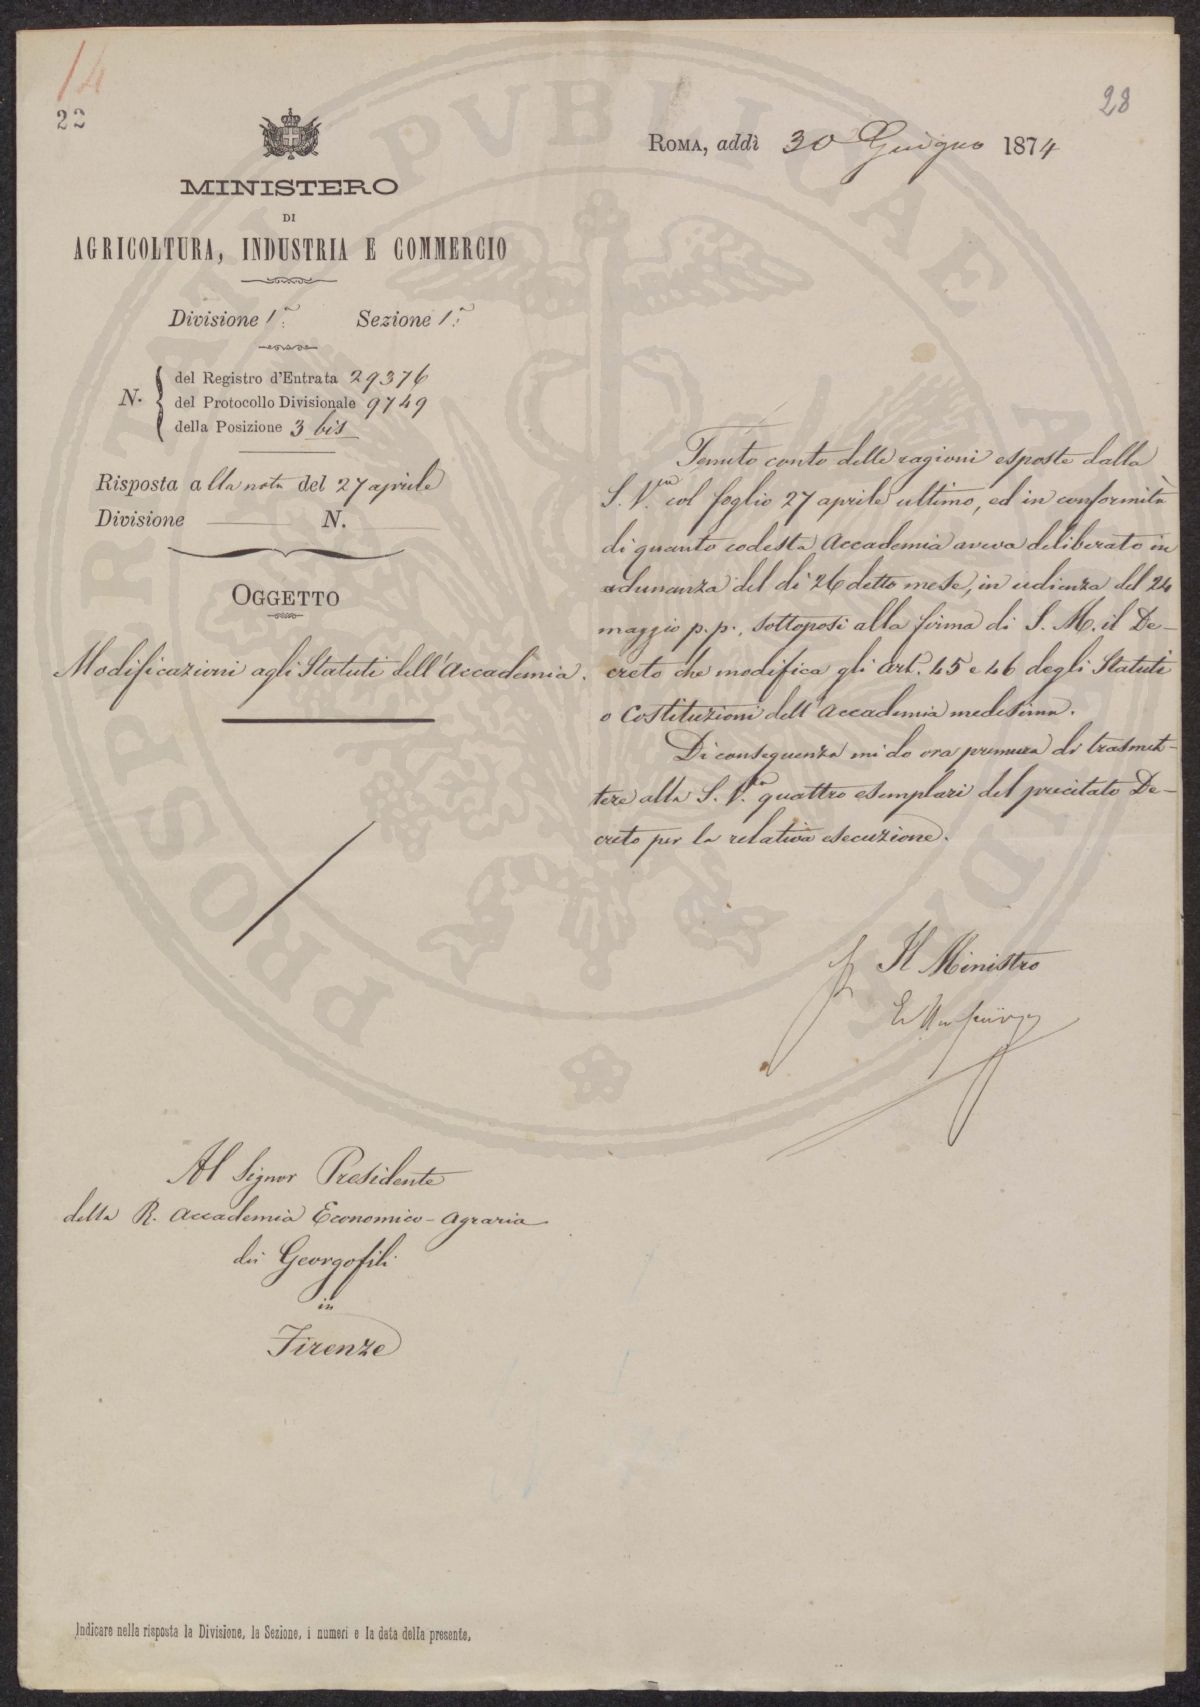 14
22
28
MINISTERO
DI
AGRICOLTURA, INDUSTRIA E COMMERCIO
Roma, addì 30 Giugno 1874
Divisione 1ª Sezione 1ª
N.
del Registro d'Entrata 29376
del Protocollo Divisionale 9749
della Posizione 3 bis
Risposta alla nota del 27 aprile
Divisione N.
Oggetto
Modificazioni agli Statuti dell'Accademia.
Tenuto conto delle ragioni esposte dalla
S. V.ra col foglio 27 aprile ultimo, ed in conformità
di quanto codesta Accademia aveva deliberato in
adunanza del dì 26 detto mese, in udienza del 24
maggio p.p., sottoposi alla firma di S. M. il De-
creto che modifica gli art. 45 e 46 degli Statuti
o Costituzioni dell'Accademia medesima.
Di conseguenza mi do ora premura di trasmet-
tere alla S. V.ra quattro esemplari del precitato De-
creto per la relativa esecuzione.
Il Ministro
Al Signor Presidente
della R. Accademia Economico-Agraria
dei Georgofili
in
Firenze
Indicare nella risposta la Divisione, la Sezione, i numeri e la data della presente.
PROSPERITATI PVBLICAE